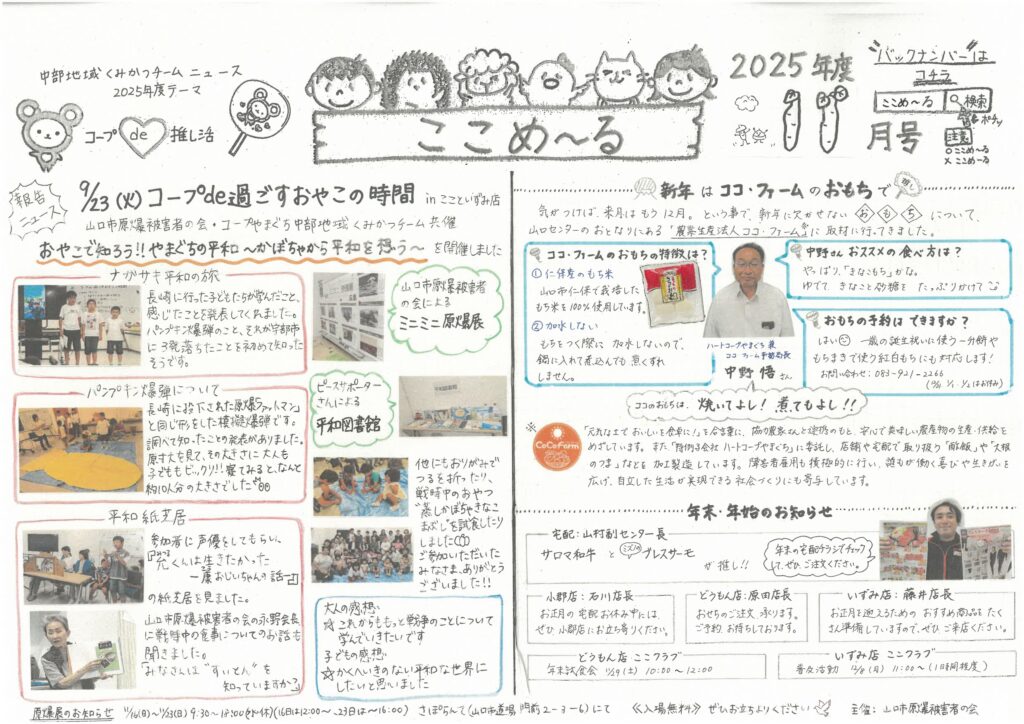 中部地域くみかつチーム ニュース
2025年度テーマ
コープ de 推し活
ここめ〜る
2025年度
11月号
"バックナンバー"は
コチラ
ここめ〜る 検索
ポチッ
注意
○ここめ〜る
×こめ〜る
報告
ニュース
9/23(火)コープde過ごすおやこの時間 in ここといずみ店
山口市原爆被害者の会・コープやまぐち中部地域くみかつチーム 共催
おやこで知ろう!!やまぐちの平和 〜かぼちゃから平和を想う〜 を開催しました
ナガサキ平和の旅
長崎に行った子どもたちが学んだこと、
感じたことを発表してくれました。
パンプキン爆弾のこと、それが宇部市
に3発落ちたことを初めて知った
そうです。
山口市原爆被害者
の会による
ミニミニ原爆展
パンプキン爆弾について
長崎に投下された原爆「ファットマン」
と同じ形をした模擬爆弾です。
調べて知ったことの発表がありました。
原寸大を見て、その大きさに大人も
子どももビックリ!!寝てみると、なんと
約10人分の大きさでした
ピースサポーター
さんによる
平和図書館
平和紙芝居
参加者に声優をしてもらい、
くんは生きたかった
おじいちゃんの話
の紙芝居を見ました。
山口市原爆被害者の会の永野会長
に戦時中の食事についてのお話も
聞きました。
「みなさんは"すいとん"を
知っていますか?」
他にもおりがみで
つるを折ったり、
戦時中のおやつ
"蒸しかぼちゃきなこ
まぶし"を試食したり
しました
ご参加いただいた
みなさま、ありがとう
ございました!!
大人の感想
☆これからももっと戦争のことについて
学んでいきたいです
子どもの感想
☆かくへいきのない平和な世界に
したいと思いました
新年はココ・ファームのおもちで
推し
気がつけば、来月はもう12月。という事で、新年に欠かせない おもち について、
山口センターのおとなりにある「農業生産法人ココ・ファーム」に取材に行ってきました。
ココ・ファームのおもちの特徴は?
①仁保産のもち米
山口市仁保で栽培した
もち米を100%使用しています。
②加水しない
もちをつく際に加水しないので、
鍋に入れて煮込んでも煮くずれ
しません。
ハートコープやまぐち 兼
ココ・ファーム事務局長
中野 悟さん
中野さんおススメの食べ方は?
やっぱり、「きなこもち」かな。
ゆでて、きなこと砂糖をたっぷりかけて
おもちの予約はできますか?
はい 一歳の誕生祝いに使う一升餅や
もちまきで使う紅白もちにも対応します!
お問い合わせ:083-921-2266
ココのおもちは、焼いてよし!煮てもよし!!
CoCoFarm
「元気な土でおいしいを食卓に!」を合言葉に、協力農家さんと連携のもと、安心で美味しい農産物の生産・供給を
めざしています。また、「特例子会社ハートコープやまぐち」に委託し、店舗や宅配で取り扱う「酢飯」や「大根
のつま」などを加工製造しています。障害者雇用も積極的に行い、誰もが働く喜びや生きがいを
広げ、自立した生活が実現できる社会づくりにも寄与しています。
年末・年始のお知らせ
宅配:山村副センター長
サロマ和牛と プレスサーモ
が推し!!
年末の宅配チラシでチェック
して、ぜひ、ご注文ください。
小郡店:石川店長
お正月の宅配お休み中には、
ぜひ小郡店にお立ち寄りください。
どうもん店:原田店長
おせちのご注文承ります。
ご予約、お待ちしております。
いずみ店:藤井店長
お正月を迎えるためのおすすめ商品をたく
さん準備していますので、ぜひご来店ください。
どうもん店 ここクラブ
年末試食会 11/29(土) 10:00〜12:00
いずみ店 ここクラブ
普及活動 12/8(月) 11:00〜(1時間程度)
原爆展のお知らせ 11/16(日)〜11/23(日) 9:30〜18:00 (16日は12:00〜、23日は〜16:00) さぽらんて(山口市道場門前2-3-6)にて 《入場無料》 ぜひお立ちよりください 主催:山口市原爆被害者の会